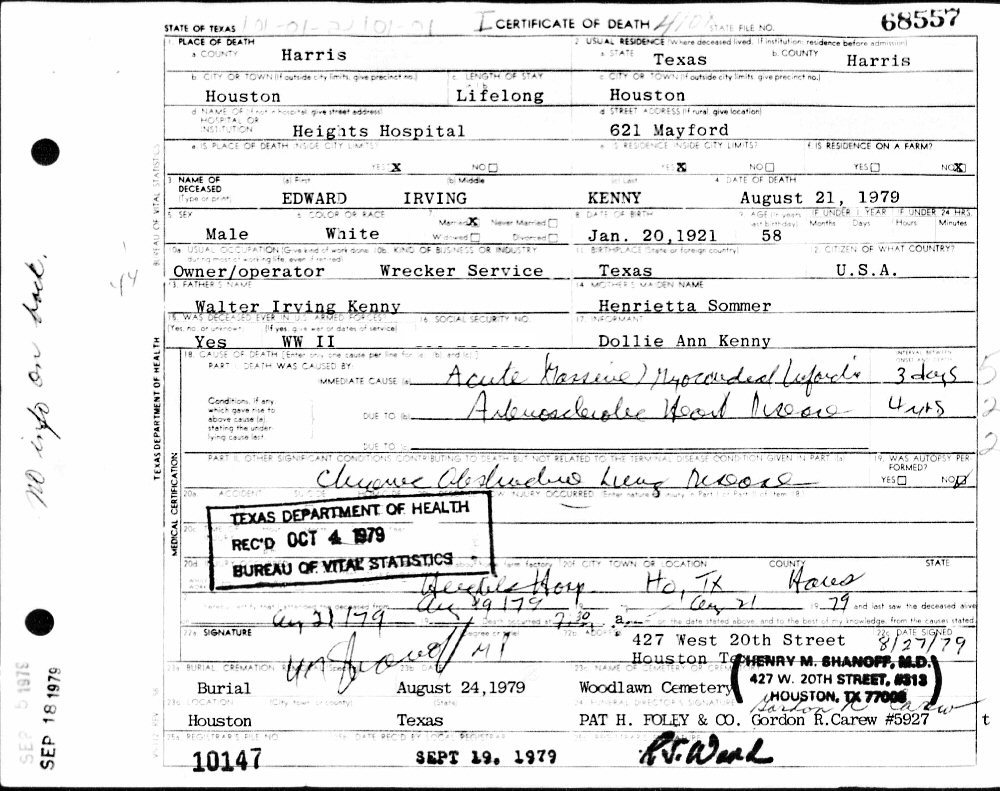 STATE OF TEXAS CERTIFICATE OF DEATH STATE FILE NO. 68557
1. PLACE OF DEATH 2. USUAL RESIDENCE (Where deceased lived. If institution: residence before admission)
a. COUNTY Harris a. STATE Texas b. COUNTY Harris
b. CITY OR TOWN (If outside city limits, give precinct no.) c. LENGTH OF STAY c. CITY OR TOWN (If outside city limits, give precinct no.)
Houston Lifelong Houston
d. NAME OF (If not in hospital, give street address) HOSPITAL OR INSTITUTION d. STREET ADDRESS (If rural, give location)
Heights Hospital 621 Mayford
e. IS PLACE OF DEATH INSIDE CITY LIMITS? e. IS RESIDENCE INSIDE CITY LIMITS? f. IS RESIDENCE ON A FARM?
YES X NO YES X NO YES NO X
3. NAME OF DECEASED (Type or print) (a) First (b) Middle (c) Last 4. DATE OF DEATH
EDWARD IRVING KENNY August 21, 1979
5. SEX 6. COLOR OR RACE Married X Never Married Widowed Divorced 8. DATE OF BIRTH 9. AGE (In years last birthday) IF UNDER 1 YEAR Months Days IF UNDER 24 HRS. Hours Minutes
Male White Jan. 20,1921 58
10a. USUAL OCCUPATION (Give kind of work done during most of working life, even if retired) 10b. KIND OF BUSINESS OR INDUSTRY 11. BIRTHPLACE (State or foreign country) 12. CITIZEN OF WHAT COUNTRY?
Owner/operator Wrecker Service Texas U.S.A.
13. FATHER'S NAME 14. MOTHER'S MAIDEN NAME
Walter Irving Kenny Henrietta Sommer
15. WAS DECEASED EVER IN U.S. ARMED FORCES? (Yes, no, or unknown) (If yes, give war or dates of service) 16. SOCIAL SECURITY NO. 17. INFORMANT
Yes WW II Dollie Ann Kenny
18. CAUSE OF DEATH [Enter only one cause per line for (a), (b), and (c).] INTERVAL BETWEEN ONSET AND DEATH
PART I. DEATH WAS CAUSED BY:
IMMEDIATE CAUSE (a) Acute Massive Myocardial Infarction 3 days 5
Conditions, if any, which gave rise to above cause (a), stating the under-lying cause last.
DUE TO (b) Arteriosclerotic Heart Disease 4 yrs 2
DUE TO (c) 2
PART II. OTHER SIGNIFICANT CONDITIONS CONTRIBUTING TO DEATH BUT NOT RELATED TO THE TERMINAL DISEASE CONDITION GIVEN IN PART I(a) 19. WAS AUTOPSY PERFORMED?
Chronic Obstructive Lung Disease YES NO
20a. ACCIDENT SUICIDE HOMICIDE INJURY OCCURRED (Enter nature of injury in Part I or Part II of item 18)
TEXAS DEPARTMENT OF HEALTH
REC'D OCT 4 1979
BUREAU OF VITAL STATISTICS
20f. CITY, TOWN, OR LOCATION COUNTY STATE
Heights Hosp Ho, TX Harris
Aug 19 1979 Aug 21 1979 and last saw the deceased alive
Aug 21 1979 Death occurred at 7:30 a. on the date stated above, and to the best of my knowledge, from the causes stated.
22a. SIGNATURE (Degree or title) 22b. ADDRESS 427 West 20th Street 22c. DATE SIGNED 8/27/79
MD Houston
HENRY M. SHANOFF, M.D.
427 W. 20TH STREET, #313
HOUSTON, TX 77008
23a. BURIAL, CREMATION 23b. DATE 23c. NAME OF CEMETERY OR CREMATORY
Burial August 24,1979 Woodlawn Cemetery
23d. LOCATION (City, town, or county) (State) 24. FUNERAL DIRECTOR'S SIGNATURE Gordon R Carew
Houston Texas PAT H. FOLEY & CO. Gordon R.Carew #5927 t
25a. REGISTRAR'S FILE NO. 25b. DATE REC'D BY LOCAL REGISTRAR 25c. REGISTRAR'S SIGNATURE
10147 SEPT 19. 1979 R.J. Ward
TEXAS DEPARTMENT OF HEALTH BUREAU OF VITAL STATISTICS
MEDICAL CERTIFICATION
no info on dock.
SEP 5 1979
SEP 18 1979